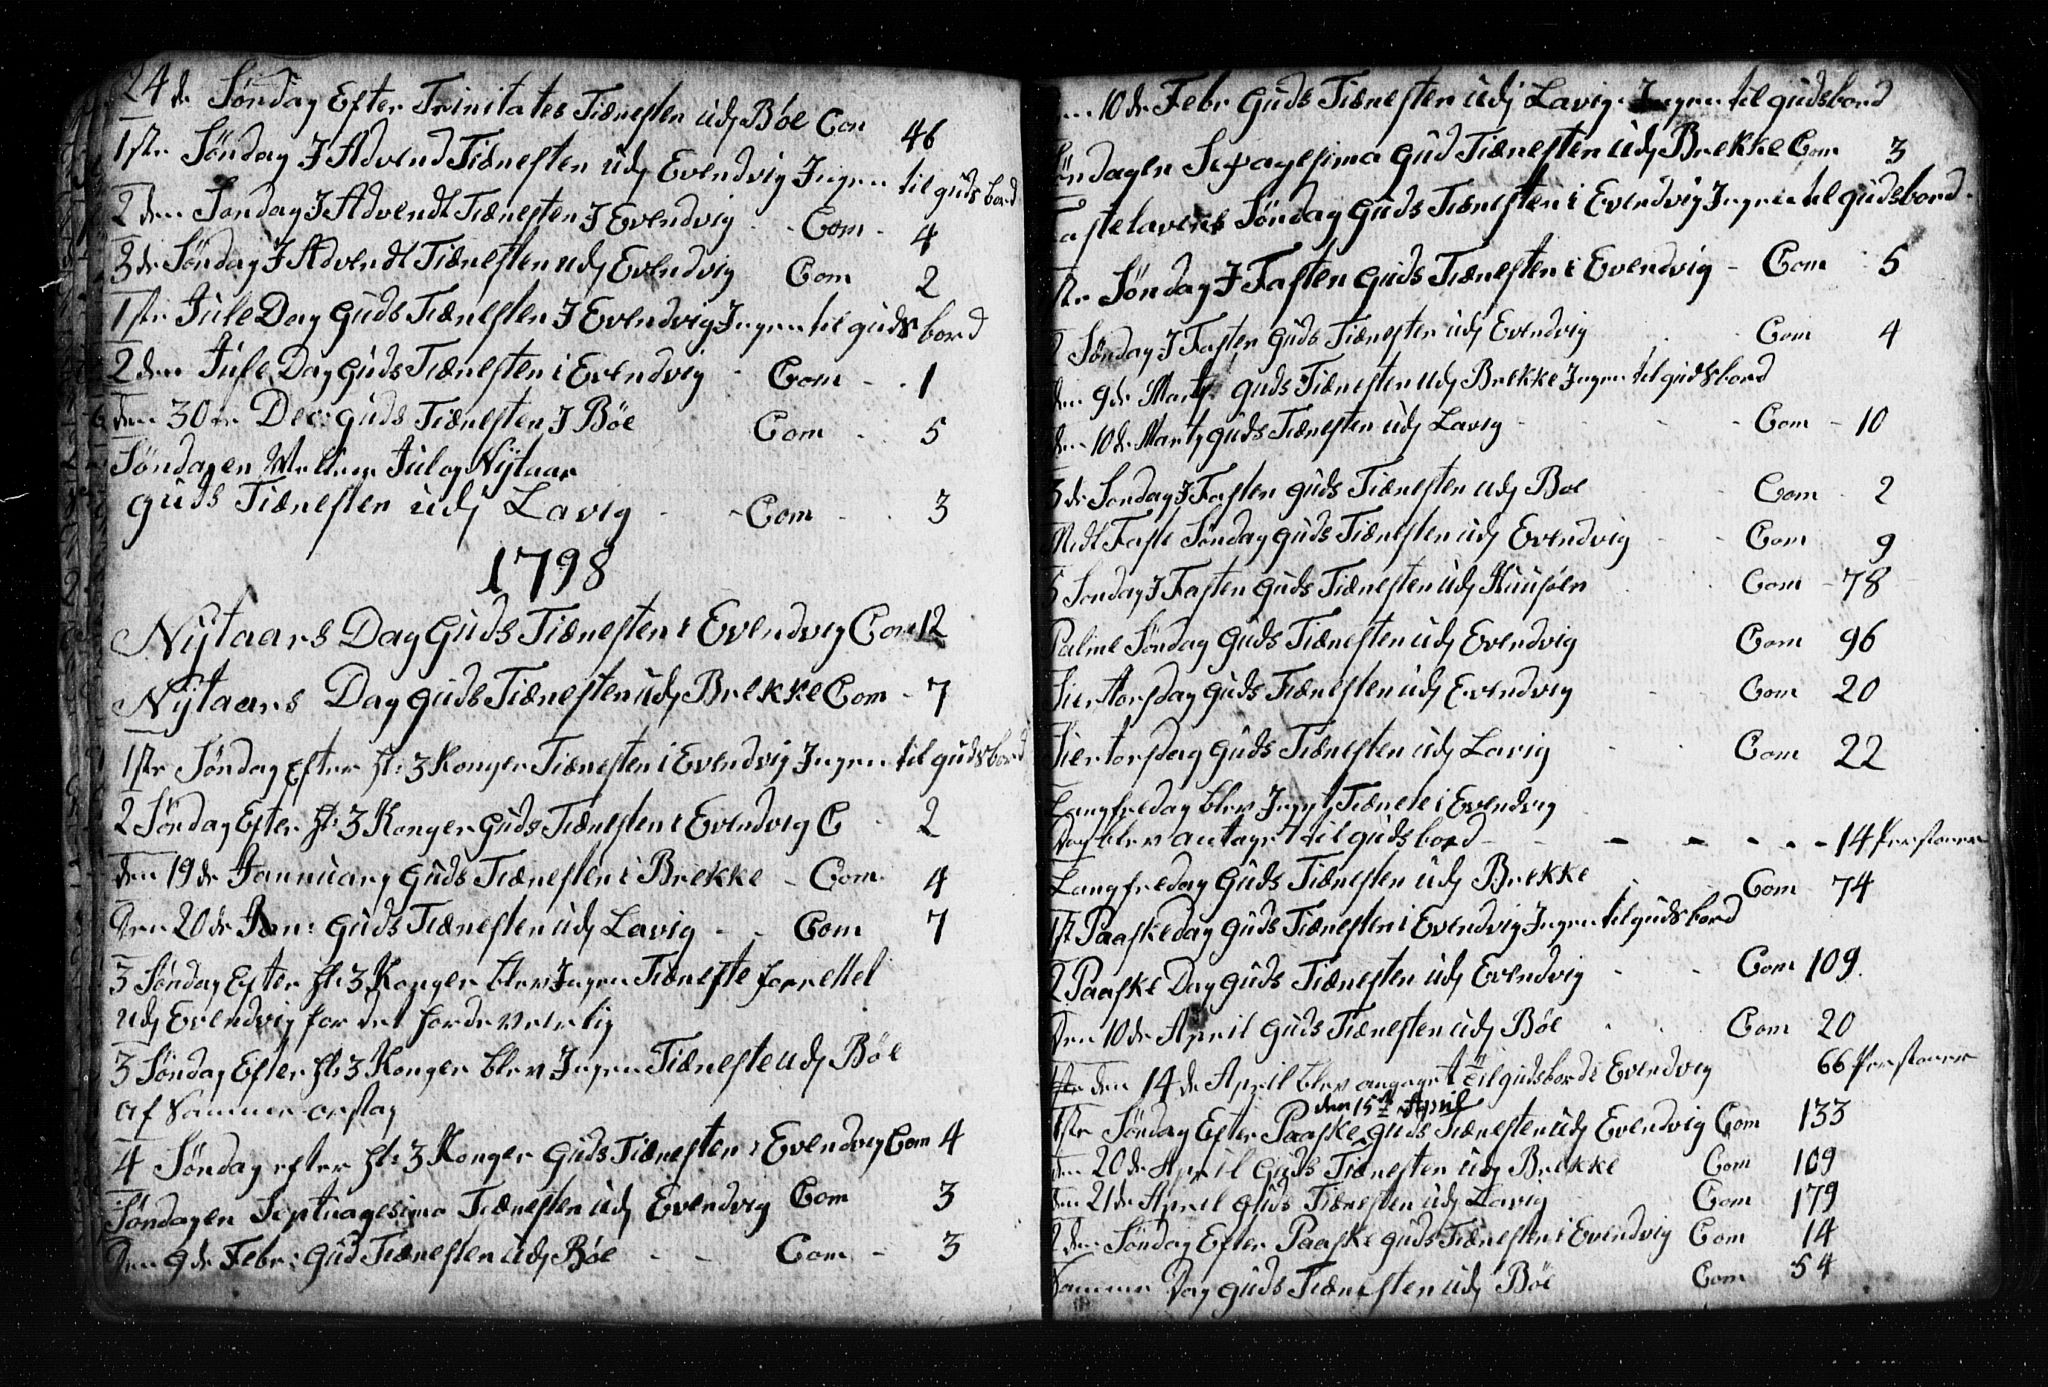 24de Søndag Efter Trinitates Tiænesten udj Bøe Com 46
1ste Søndag J Advend Tiænesten udj Evendvig Jngen til guds bord
2den Søndag J Advendt Tiænesten J Evendvig - - Com - 4
3de Søndag J Advendt Tiænesten udj Evendvig Com 2
1ste Jule Dag Guds Tiænesten J Evendvig Jngen til guds bord
2den Jule Dag Guds Tiænesten i Evendvig - Com - - 1
den 30te Dec: guds Tiænesten J Bøe Com - 5
Søndagen Mellem Jul og Nÿtaar
guds Tiænesten udj Lavig - - Com - - 3
1798
Nÿtaars Dag Guds Tiænesten i Evendvig Com 12
Nÿtaars Dag guds Tiænesten udj Brekke Com - 7
1ste Søndag Efter H: 3 Konger Tiænesten i Evendvig Jngen til guds bord
2 Søndag Efter H: 3 Konger Guds Tiænesten i Evendvig C - 2
den 19de Jannuarj Guds Tiænesten i Brekke - Com - 4
Den 20de Jan: Guds Tiænesten udj Lavig - - Com 7
3 Søndag Efter H: 3 Konger blev Jngen Tiæneste forrettet
udj Evendvig for det haarde veirlig
3 Søndag Efter H: 3 Konger blev Jngen Tiæneste udj Bøe
af Samme orsag
4 Søndag efter H: 3 Konger Guds Tiænesten i Evendvig Com 4
Søndagen Septuagesima Tiænesten udj Evendvig Com 3
Den 9de Febr: Gud Tiænesten udj Bøe - - Com - 3
10de Febr Guds Tiænesten udj Lavig Jngen til gudsbord
Søndagen Sexagesima Gud Tiænesten udj Brekke Com 3
Fastelavens Søndag Guds Tiænesten i Evendvig Jngen til gudsbord
1ste Søndag J Fasten Guds Tiænesten i Evendvig - Com - 5
2 Søndag J Fasten Guds Tiænesten udj Evendvig - - Com 4
den 9de Martj guds Tiænesten udj Brekke Jngen til gudsbord
den 10de Martj Guds Tiænesten udj Lavig - - - Com - 10
3de Søndag J Fasten guds Tiænesten udj Bøe - - Com - 2
Midt Faste Søndag Guds Tiænesten udj Evendvig - - Com 9
5 Søndag J Fasten Guds Tiænesten udj Huusøen - Com - 78
Palme Søndag Guds Tiænesten udj Evendvig Com 96
Skiertorsdag Guds Tiænesten udj Evendvig - - Com 20
Skiertorsdag Guds Tiænesten udj Lavig - - Com 22
Langfredag blev Jngen Tiænste i Evendvig
Dog blev antaget til gudsbord - - - - - - - 14 Personer
Langfredag Guds Tiænesten udj Brekke Com 74
1st Paaskedag Guds Tiænesten i Evendvig Jngen til guds bord
2 Paaske Dag Guds Tiænesten udj Evendvig - - Com 109
Den 10de April Guds Tiænesten udj Bøe - - Com 20
den 14de April blev angaget til gudsbord i Evendvig 66 Personer
den 15de April
1ste Søndag Efter Paaske Guds Tiænesten udj Evendvig Com 133
den 20de April Guds Tiænesten udj Brekke Com 109
den 21de April Guds Tiænesten udj Lavig Com 179
2den Søndag Efter Paaske guds Tiænesten i Evendvig Com 14
Samme Dag Guds Tiænesten udj Bøe Com 54